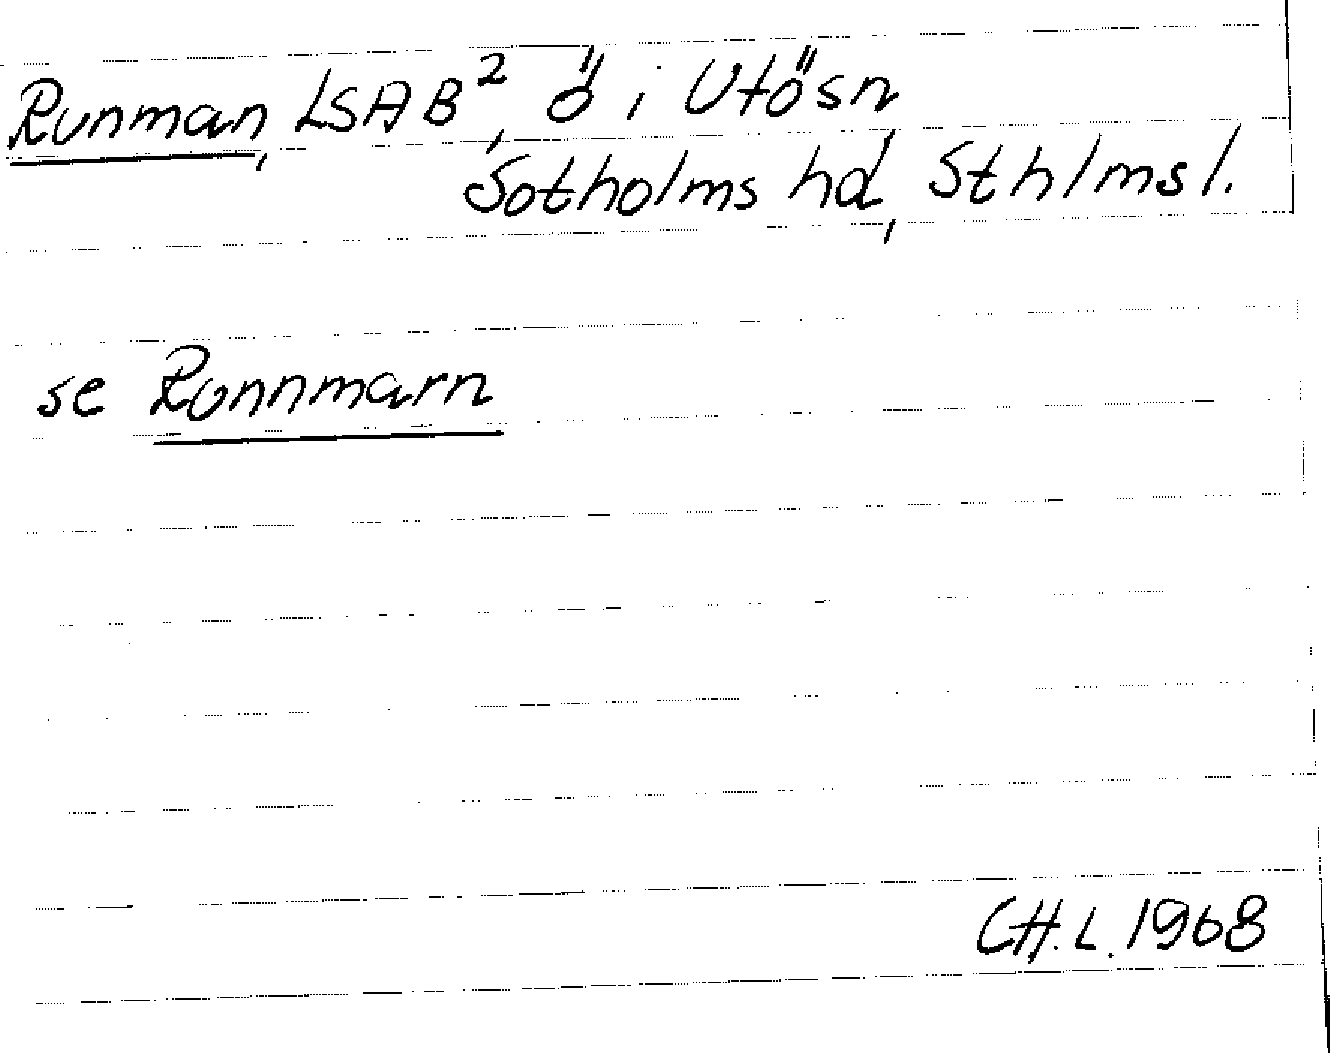 Runman, LSAB², ö i Utö sn,
Sotholms hd, Sthlms l.
se Runnmarn
CH.L. 1968